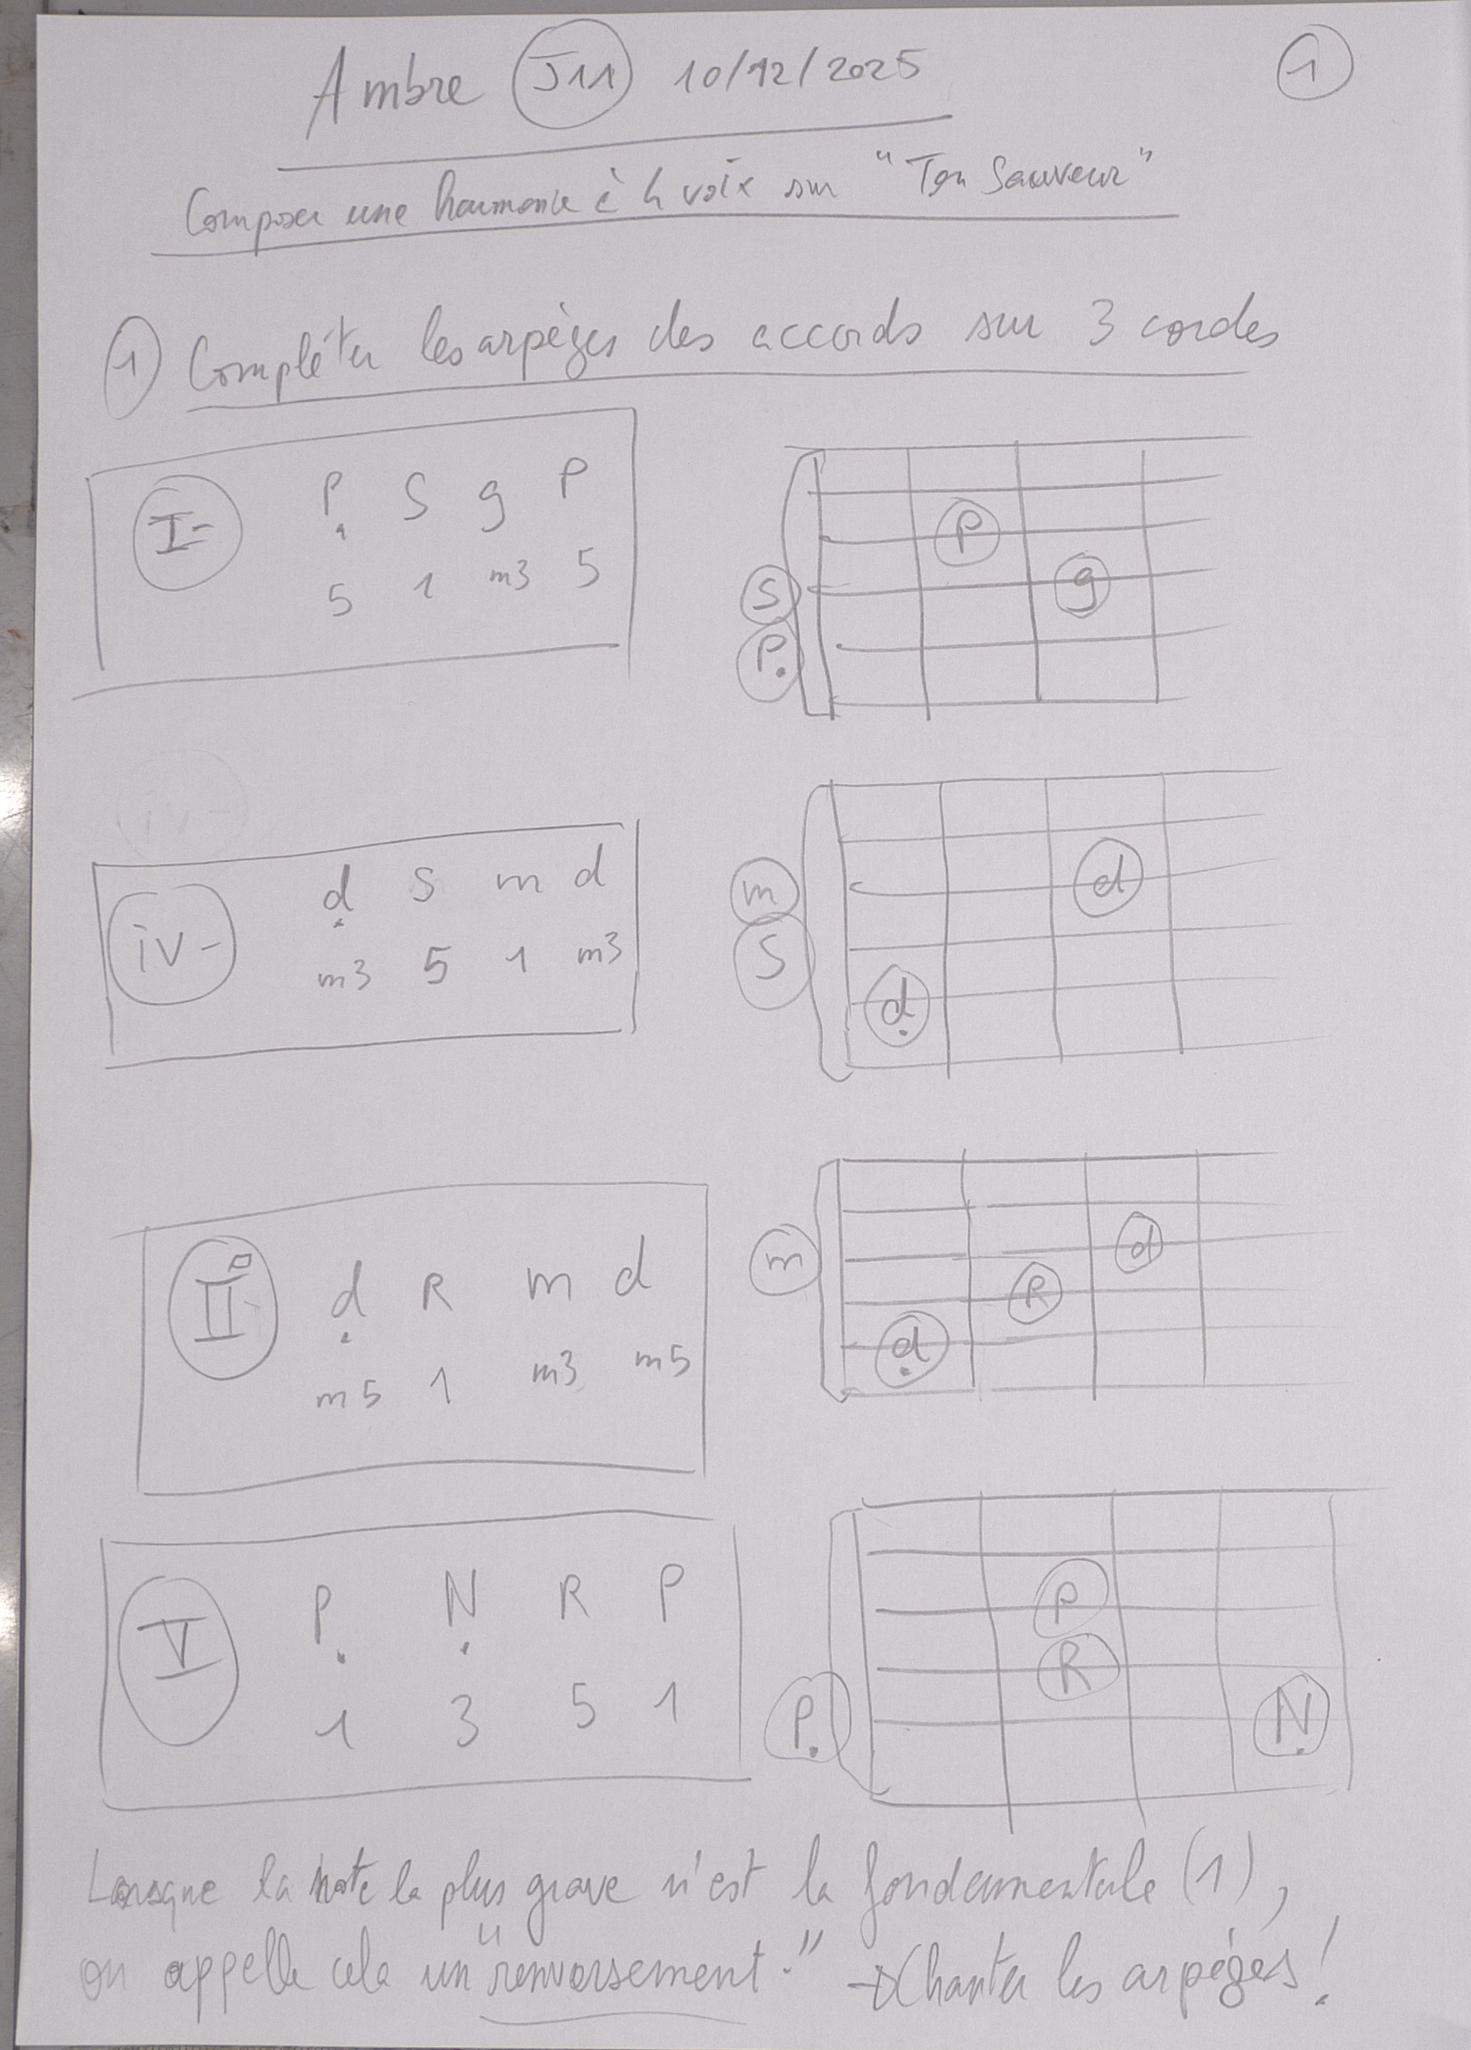 Ambre J11 10/12/2025
1
Composer une harmonie à la voix sur "Ton Sauveur"
1 Compléter les arpèges des accords sur 3 cordes
I- P S g P
5 1 m3 5
P
g
S
P.
iv-
iv- d S m d
m3 5 1 m3
m
d
S
d
II° d R m d
m5 1 m3 m5
m
d
R
d
V P N R P
1 3 5 1
P
R
P. N
Lorsque la note la plus grave n'est la fondamentale (1),
on appelle cela un "renversement." → Chanter les arpèges!